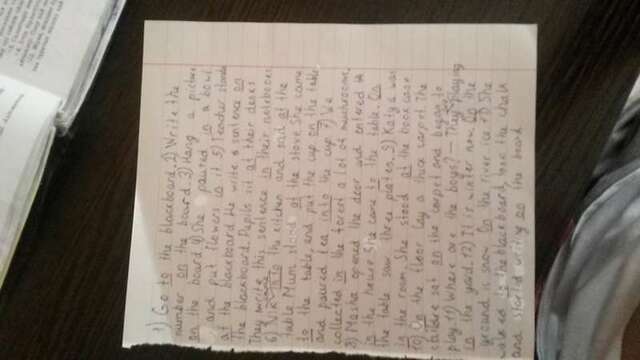 1) Go to the blackboard. 2) Write the
number on the board. 3) Hang a picture
on the board. 4) She paured in a bowl
and put flowers in it. 5) Teacher stands
at the blackboard. He write a sentence on
the blackboard. Pupils sit at their desks
They write this sentence in their notebooks
6) into the kitchen and said at the
table. Mum stands at the stove. She came
to the table and put the cup on the table
and poured tea into the cup. 7) We
collected in the forest a lot of mushrooms.
8) Masha opened the door and entered in
in the house. She came to the table. On
the table saw three plates. 9) Katya was
in the room. She stood at the bookcase
10) On the floor lay a thick carpet. The
children sat on the carpet and began to
play. 11) Where are the boys? - They playing
in the yard. 12) It is winter now. On the
ground is snow. On the river ice. 13) She
walked to the blackboard, took the chalk
and started writing on the board.